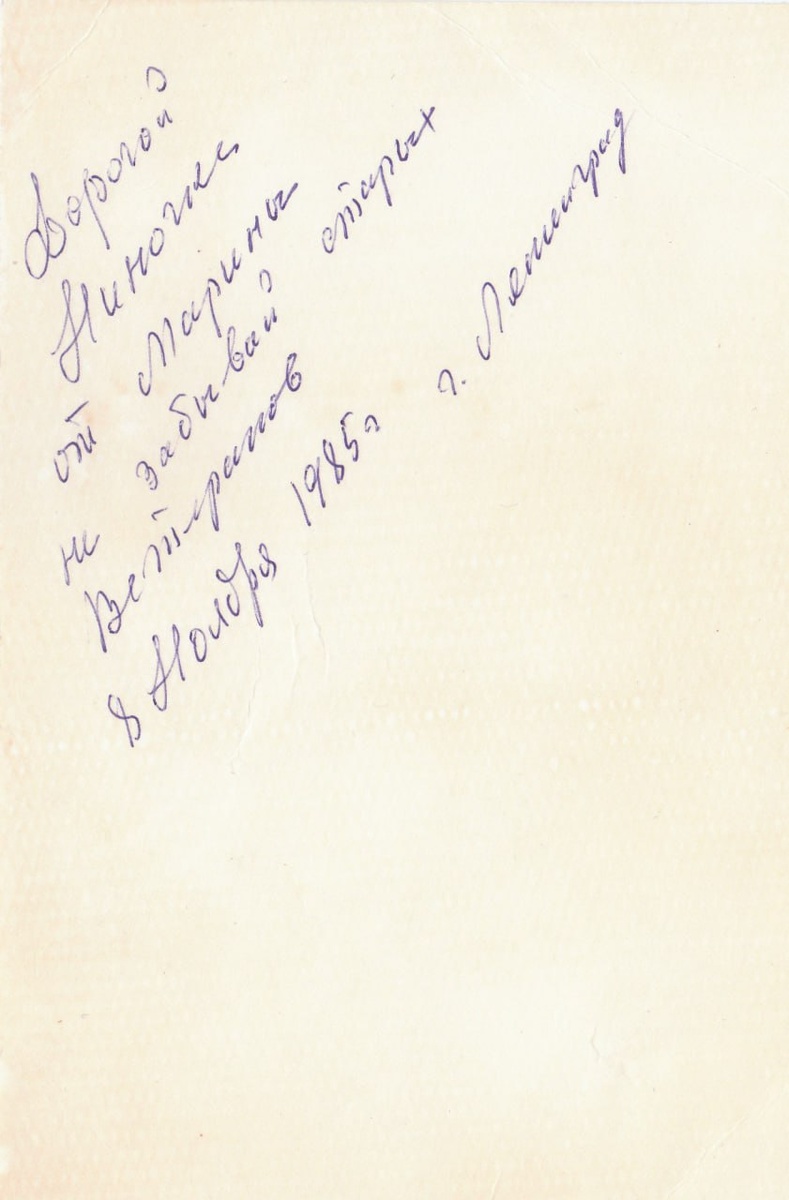 Дорогой
Ниночке
от Марины
не забывай старых
Ветеранов
8 Ноября 1985г г. Ленинград